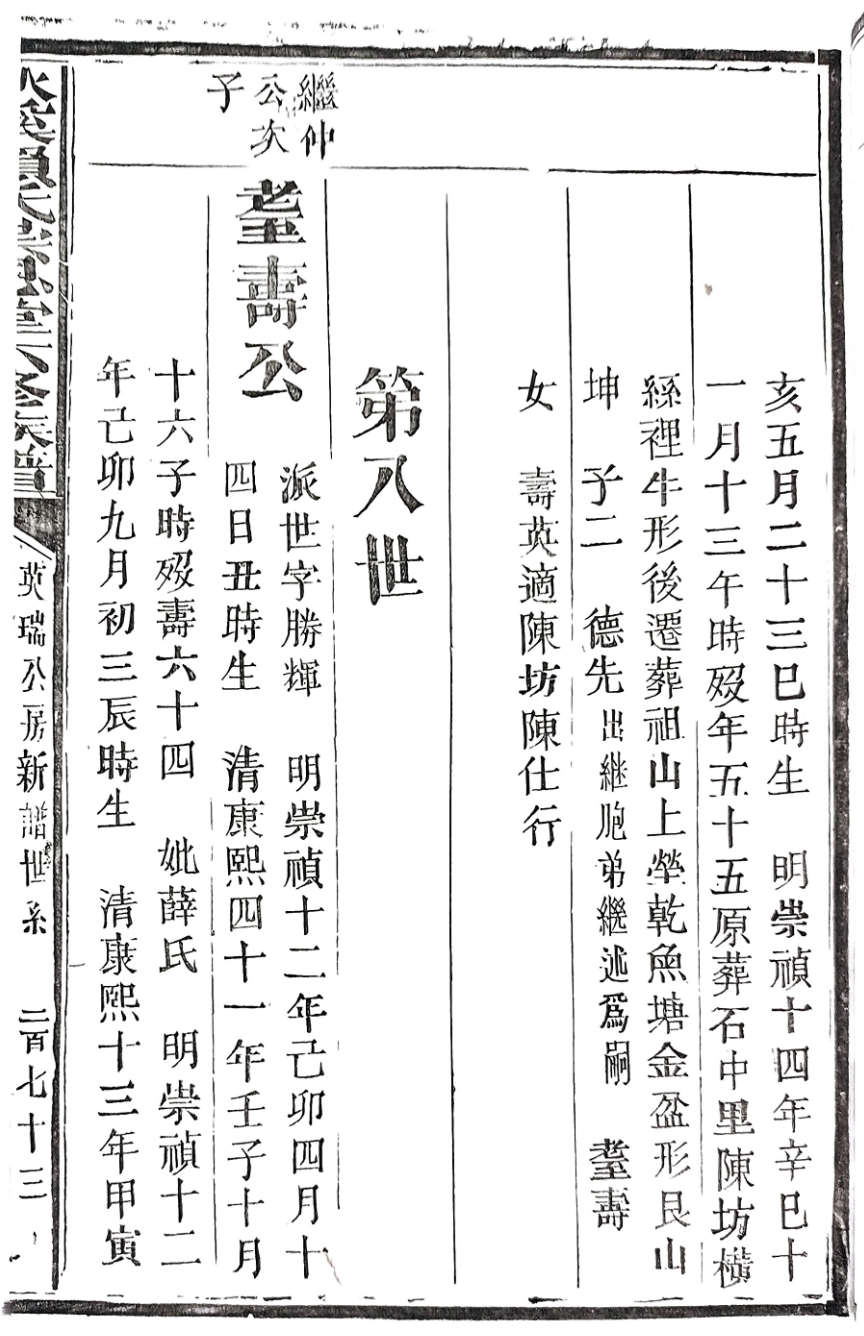 亥五月二十三巳時生　明崇禎十四年辛巳十
一月十三午時歿年五十五原葬石中里陳坊橫
絲裡牛形後遷葬祖山上塋乾魚塘金盆形艮山
坤　子二　德先出継胞弟繼述爲嗣　耋壽
女　壽英適陳坊陳仕行
第八世
繼仲
公次
子
耋壽公
派世字勝輝　明崇禎十二年己卯四月十
四日丑時生　清康熙四十一年壬子十月
十六子時歿壽六十四　妣薛氏　明崇禎十二
年己卯九月初三辰時生　清康熙十三年甲寅
氏
族譜
英瑞公房新譜世系　二百七十三